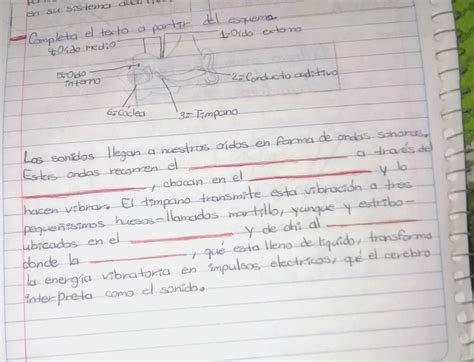 en su sistema
Completa el texto a partir del esquema.
4=Oído medio
1=Oído externo
5=Oído interno
2=Conducto auditivo
6=Cóclea
3=Tímpano
Los sonidos llegan a nuestros oídos en forma de ondas sonoras.
Estas ondas recorren el ____________ a través del
____________, chocan en el ____________ y lo
hacen vibrar. El tímpano transmite esta vibración a tres
pequeñísimos huesos—llamados martillo, yunque y estribo—
ubicados en el ____________ y de ahí al ____________
donde la ____________, qué esta lleno de líquido, transforma
la energía vibratoria en impulsos electricos, qé el cerebro
interpreta como el sonido.